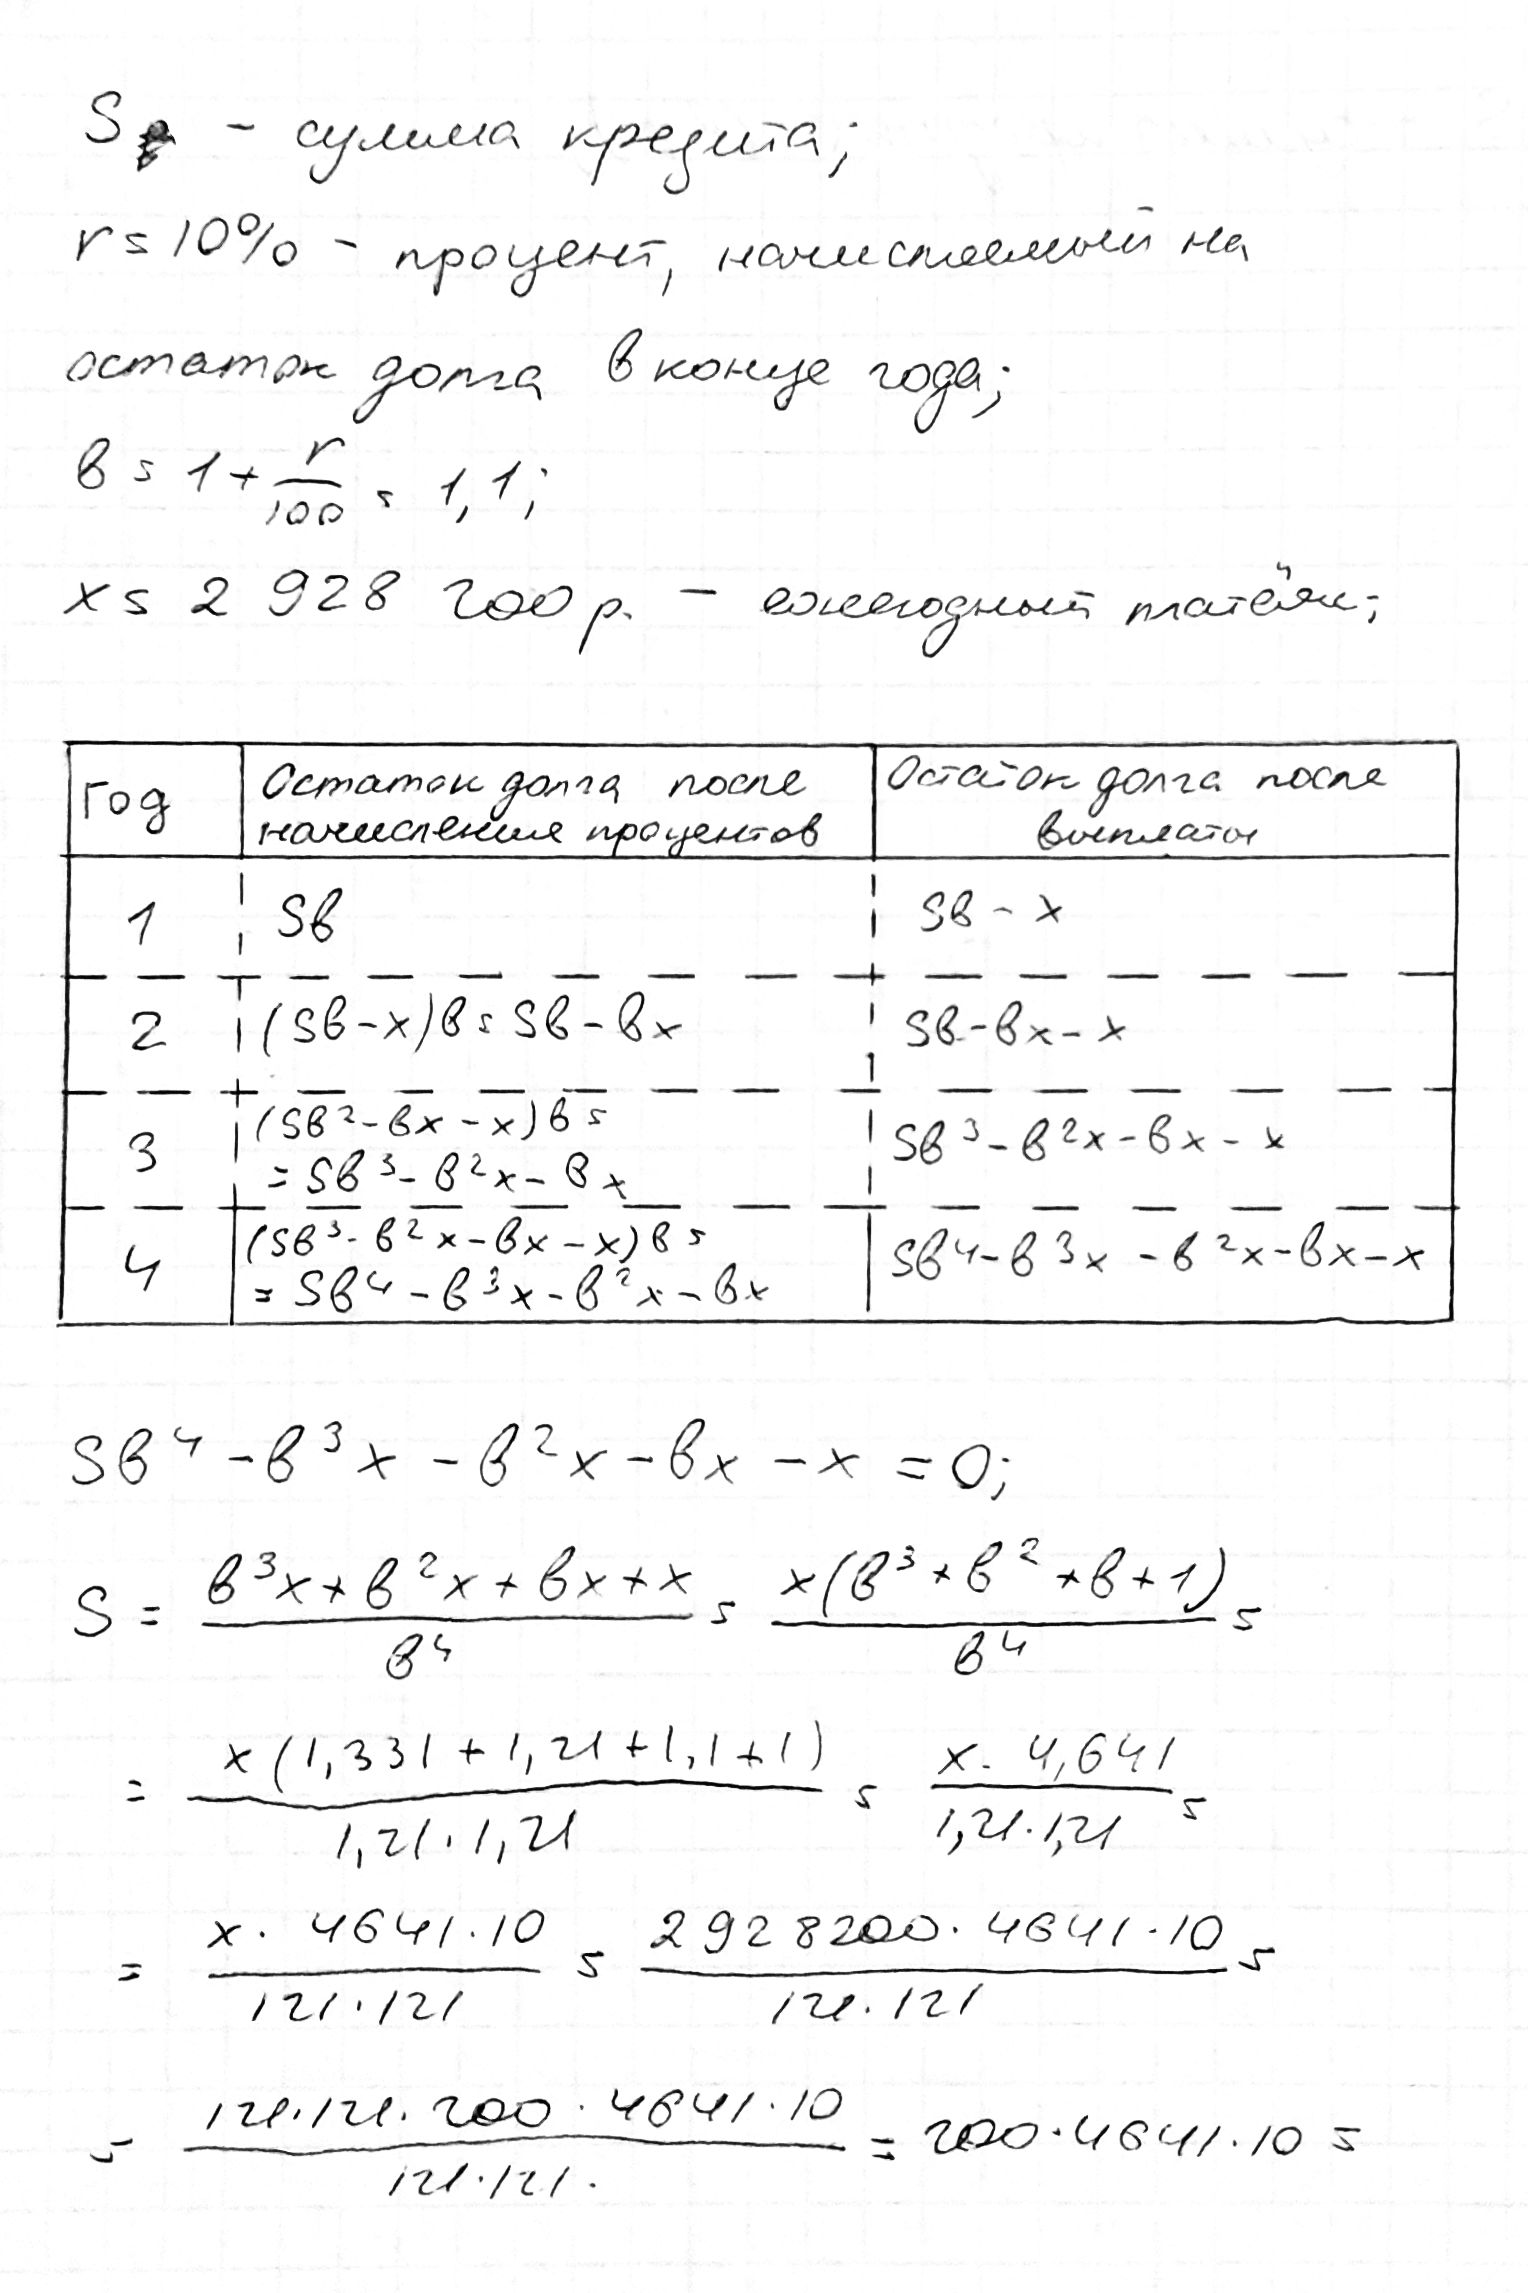 S – сумма кредита;
r = 10% – процент, начисляемый на
остаток долга в конце года;
в = 1 + r/100 = 1,1;
x = 2 928 200 р. – ежегодный платёж;
Год | Остаток долга после начисления процентов | Остаток долга после выплаты
1 | Sв | Sв - x
2 | (Sв - x)в = Sв - вx | Sв - вx - x
3 | (Sв² - вx - x)в = = Sв³ - в²x - вx | Sв³ - в²x - вx - x
4 | (Sв³ - в²x - вx - x)в = = Sв⁴ - в³x - в²x - вx | Sв⁴ - в³x - в²x - вx - x
Sв⁴ - в³x - в²x - вx - x = 0;
S = (в³x + в²x + вx + x)/в⁴ = x(в³ + в² + в + 1)/в⁴ =
= x(1,331 + 1,21 + 1,1 + 1)/(1,21 · 1,21) = x · 4,641/(1,21 · 1,21) =
= x · 4641 · 10/(121 · 121) = 2928200 · 4641 · 10/(121 · 121) =
= 121 · 121 · 200 · 4641 · 10/(121 · 121) = 200 · 4641 · 10 =